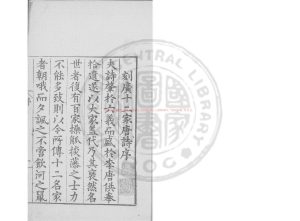 刻廣十二家唐詩序
夫詩肇於六義而盛於李唐供奉
拾遺遂以大家蓋代乃其褎然名
世者復有百家操觚掞藻之士力
不能多致則以今所傳十二名家
者朝哦而夕諷之不啻飲河之鼠
CENTRAL LIBRARY